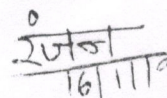 रंजन
16/11/